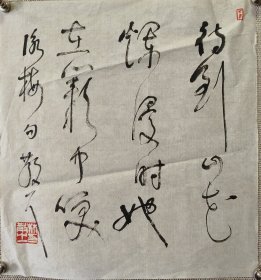 待到山花
烂漫时她
在丛中笑
咏梅句